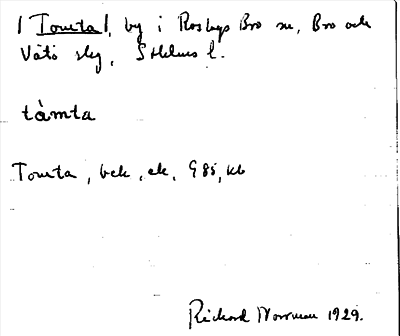 | Tomta |, by i Rosbys Bro sn, Bro och
Vätö slg, Sthlms l.
tàmta
Tomta, bek, ek, G 85, kb
Richard Norrman 1929.